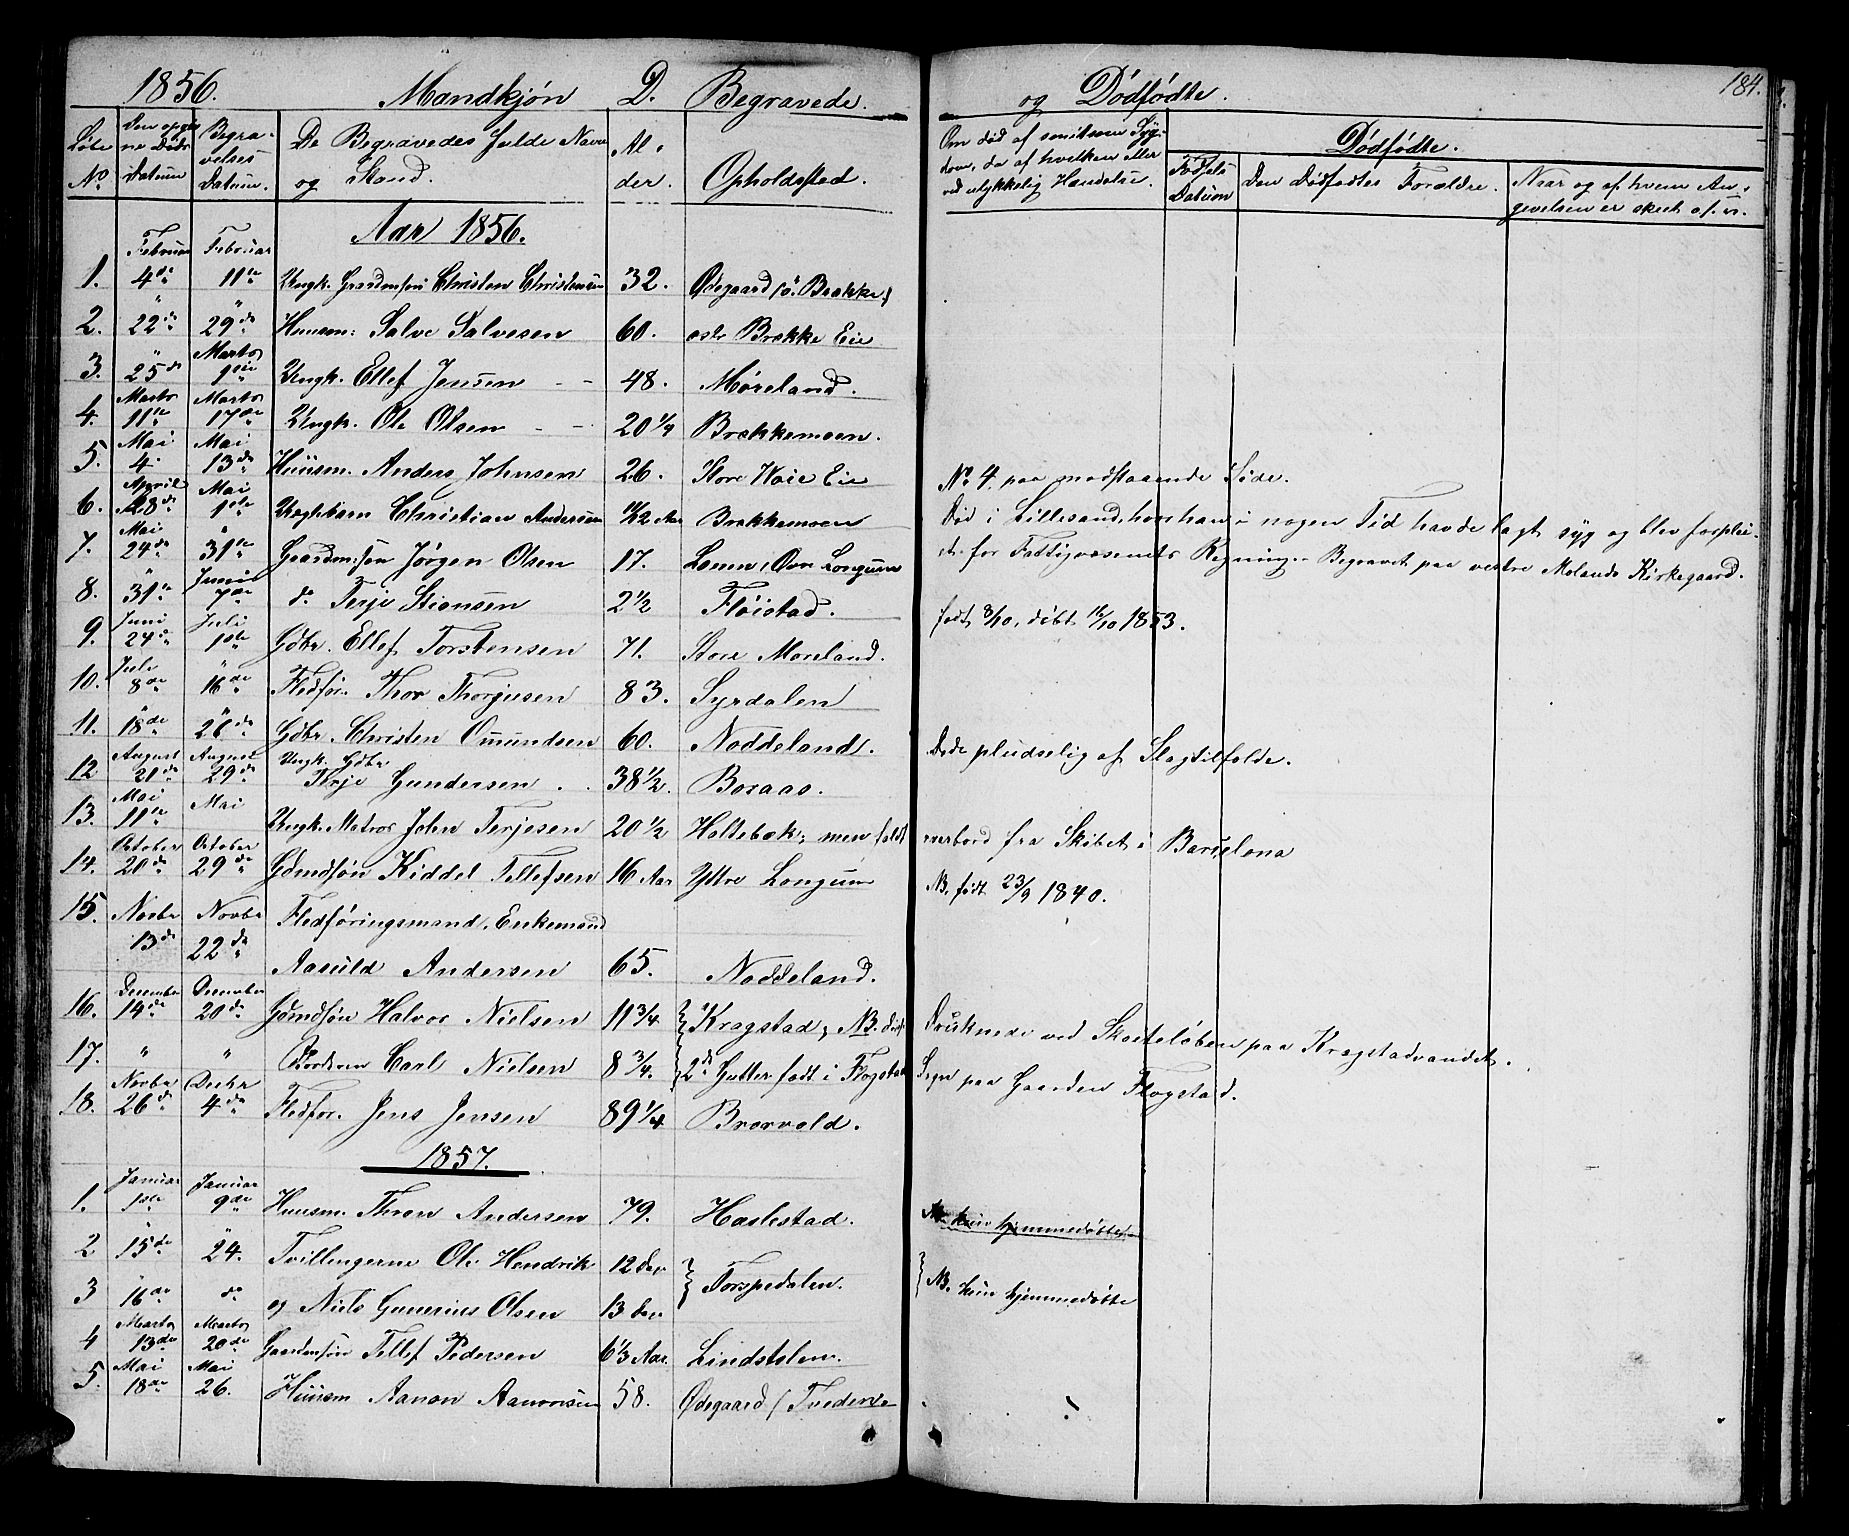 1856. Mandkjön D. Begravede. og Dödfödte. 184.
Löbe No Den opgivne Döds Datum Begravelses Datum. De Begravedes fulde Navn og Stand. Alder. Opholdssted. Om död af smitsom Sygdom, da af hvilken eller ved ulykkelig Hændelse. Dödfödte.
Födsels Datum Den Dödfødtes Forældre. Naar og af hvem Angivelsen er skeet
Aar 1856.
Februar Februar
1. 4de 11te Ungk. Gaardmsön Christen Christensen 32. Ødegaard (ö. Brække)
2. 22de 29de Huusm: Salve Salvesen 60. östr Brække Eie
3. 25de Marts 1ste Ungk. Ellef Jensen 48. Möreland.
4. Marts 11te Marts 17de Ungk. Ole Olsen 20 1/4 Brækkemoen.
5. Mai 4. Mai 13de Huusm. Anders Johnsen 26. Store Kaie Eie No 4 paa modstaaende Side.
6. April 28de Mai 1ste Uægte barn Christian Andersen 11/12 Aar Brækkemoen Död i Lillesand, hvor han i nogen Tid havde lagt syg og blev forplei-
7. Mai 24de 31te Gaardmsön Jörgen Olsen 17. Lonen, Övre Longum et for Fattigvæsenets Regning. Begravet paa vestre Molands Kirkegaard.
8. 31te Juni 7de do Terje Stiansen 2 1/2 Flöistad. födt 8/10, döbt 16/10 1853.
9. Juni 24de Juli 1ste Gdbr. Ellef Torstensen 71. Store Moreland.
10. Juli 8de 16de Fledför. Thor Thorjusen 83. Syrdalen
11. 18de 26de Gdbr. Christen Omundsen 60. Noddeland. Döde pludselig af Slagtilfælde.
12 August 21de August 29de Ungk. Gdbr Terje Gundersen 38 1/2. Boraas.
13. Mai 11te Mai Ungk. Matros John Terjesen 20 1/2 Holtebæk; men faldt overbord fra Skibet i Barselona
14. October 20de October 29de Gdmdsön Kiddel Tellefsen 16 Aar Yttre Longum NB. födt 23/9 1840.
15. Novbr 13de Novbr 22de Fledföringsmand, Enkemand
Aasuld Andersen 65. Noddeland.
16. December 14de December 20de Gdmdsön Halvor Nielsen 11 3/4 Kragstad, NB. disse Druknede ved Skoiteløben paa Kragstadvandet.
17. " " Broderen Carl Nielsen 8 3/4. 2de Gutter födt i Flogstad Sogn paa Gaarden Flogstad.
18. Novbr 26de Decbr 4de Fledför. Jens Jensen 89 1/4 Brovold.
1857.
1. Januar 1ste Januar 9de Huusm. Thron Andersen 79. Haslestad. NB. kun hjemmedöbte
2 15de 24. Tvillingerne Ole Hendrik 12 Dage
Torspedalen. NB. kun hjemmedöbte
3 16de do og Niels Gunerius Olsen 13 Dage
4 Marts 13de Marts 20de Gaardmsön Tellef Pedersen 6 1/3 Aar. Lindstolen.
5. Mai 18de Mai 26. Huusm Aanon Aanonsen 58. Ødegaard (Tvedene